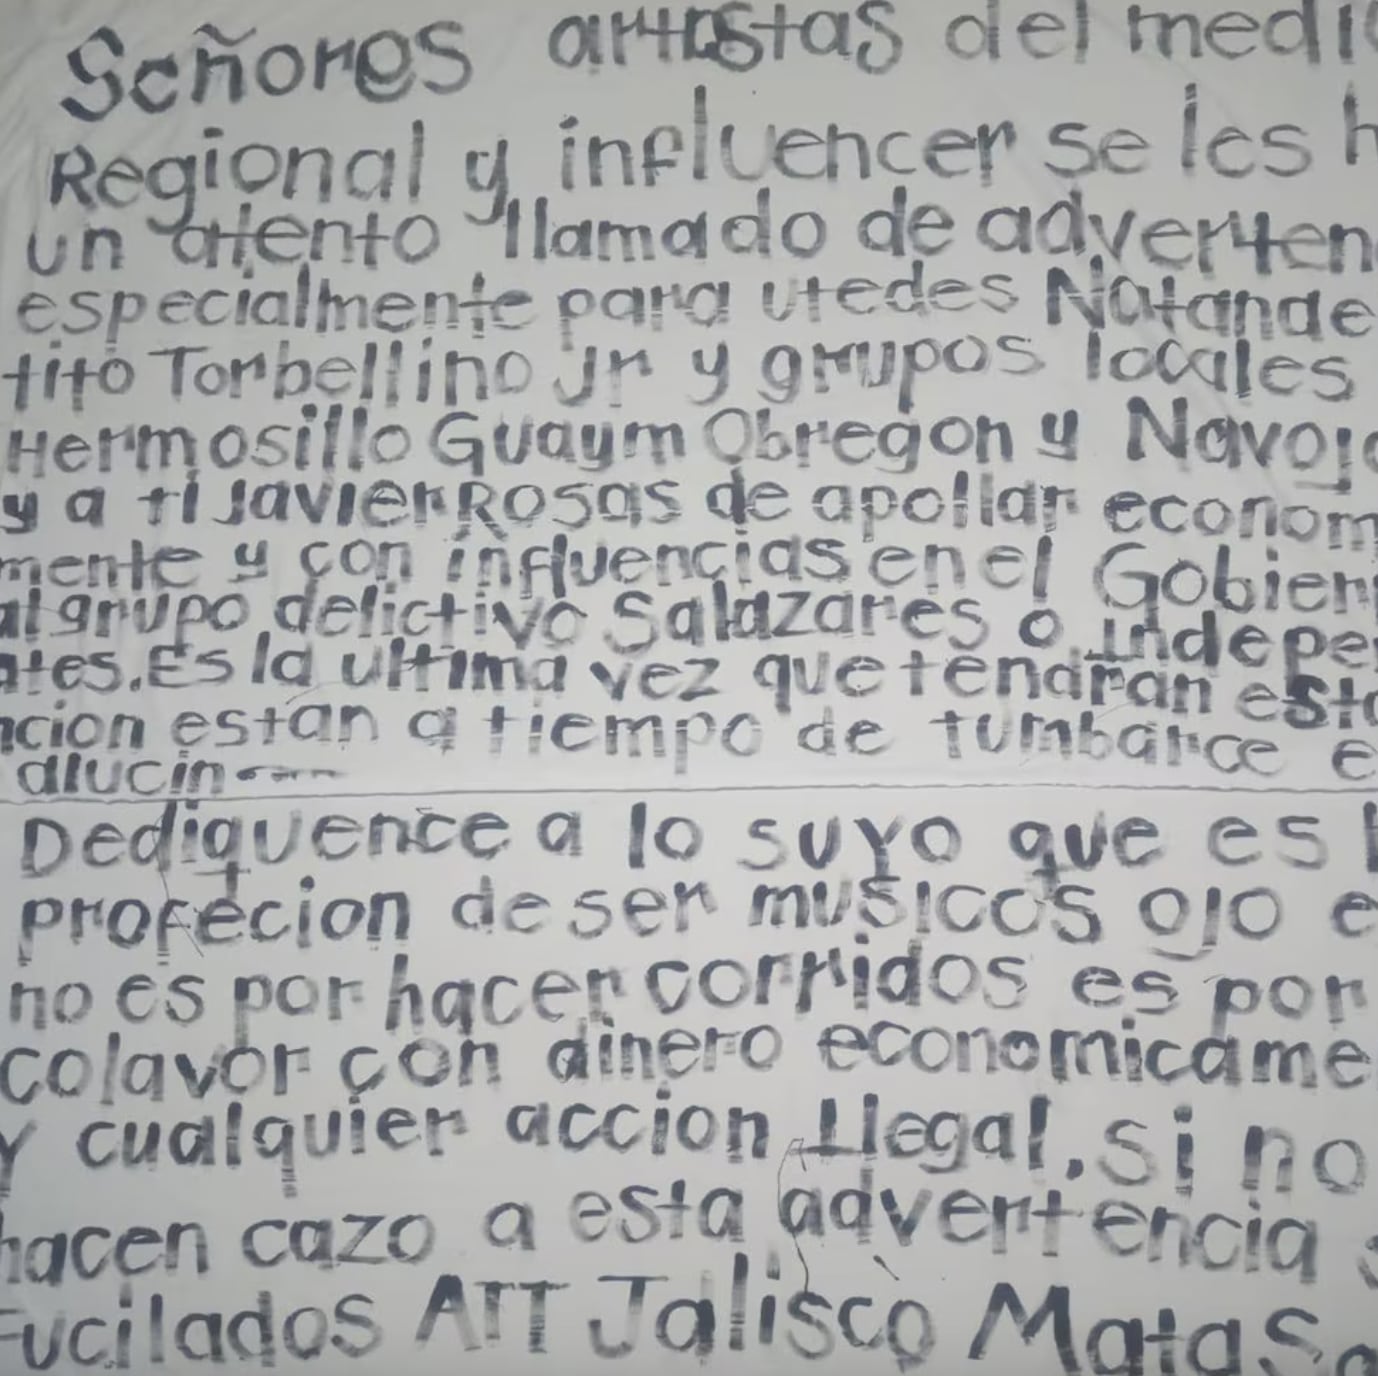 Señores artistas del medi
Regional y influencer se les h
un atento llamado de adverten
especialmente para utedes Natande
tito Torbellino jr y grupos locales
Hermosillo Guaym Obregon y Navojo
y a ti Javier Rosas de apollar econom
mente y con influencias en el Gobier
al grupo delictivo Salazares o Indepe
ntes. Es la ultima vez que tendran esta
ncion estan a tiempo de tumbarce e
alucin
Mediquence a lo suyo que es l
profecion de ser musicos ojo e
no es por hacer corridos es por
colavor con dinero economicame
y cualquier accion Ilegal. si no
hacen cazo a esta advertencia s
Fucilados ATT Jalisco Matas